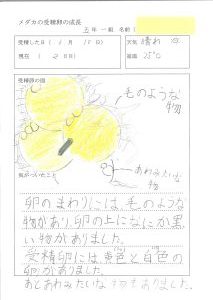 メダカの受精卵の成長
五年一組 名前(
受精した日( 月 日) 天気 晴れ
現在 ( 2日目) 気温 25℃
受精卵の図
毛のような
物
あわみたいな
物
気がついたこと
卵のまわりには、毛のような
物があり、卵の上になにか黒
い物がありました。
受精卵には、黄色と白色の
卵がありました。
あとあわみたいな物もありました。